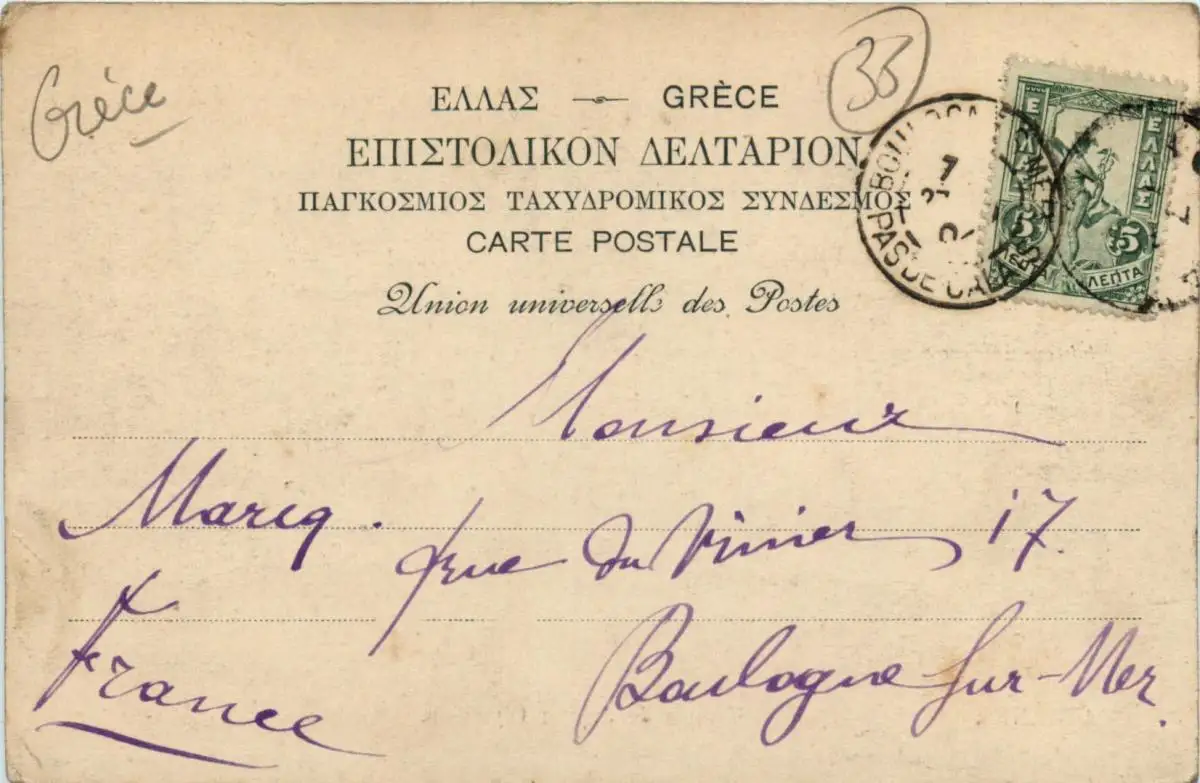 Grèce
35
ΕΛΛΑΣ — GRÈCE
ΕΠΙΣΤΟΛΙΚΟΝ ΔΕΛΤΑΡΙΟΝ
ΠΑΓΚΟΣΜΙΟΣ ΤΑΧΥΔΡΟΜΙΚΟΣ ΣΥΝΔΕΣΜΟΣ
CARTE POSTALE
Union universelle des Postes
ΕΛΛΑΣ ΕΛΛΑΣ
5 5
ΛΕΠΤΑ
PAS DE CALAIS
Monsieur
Marcq. rue du Vivier 17.
France Boulogne-sur-Mer.